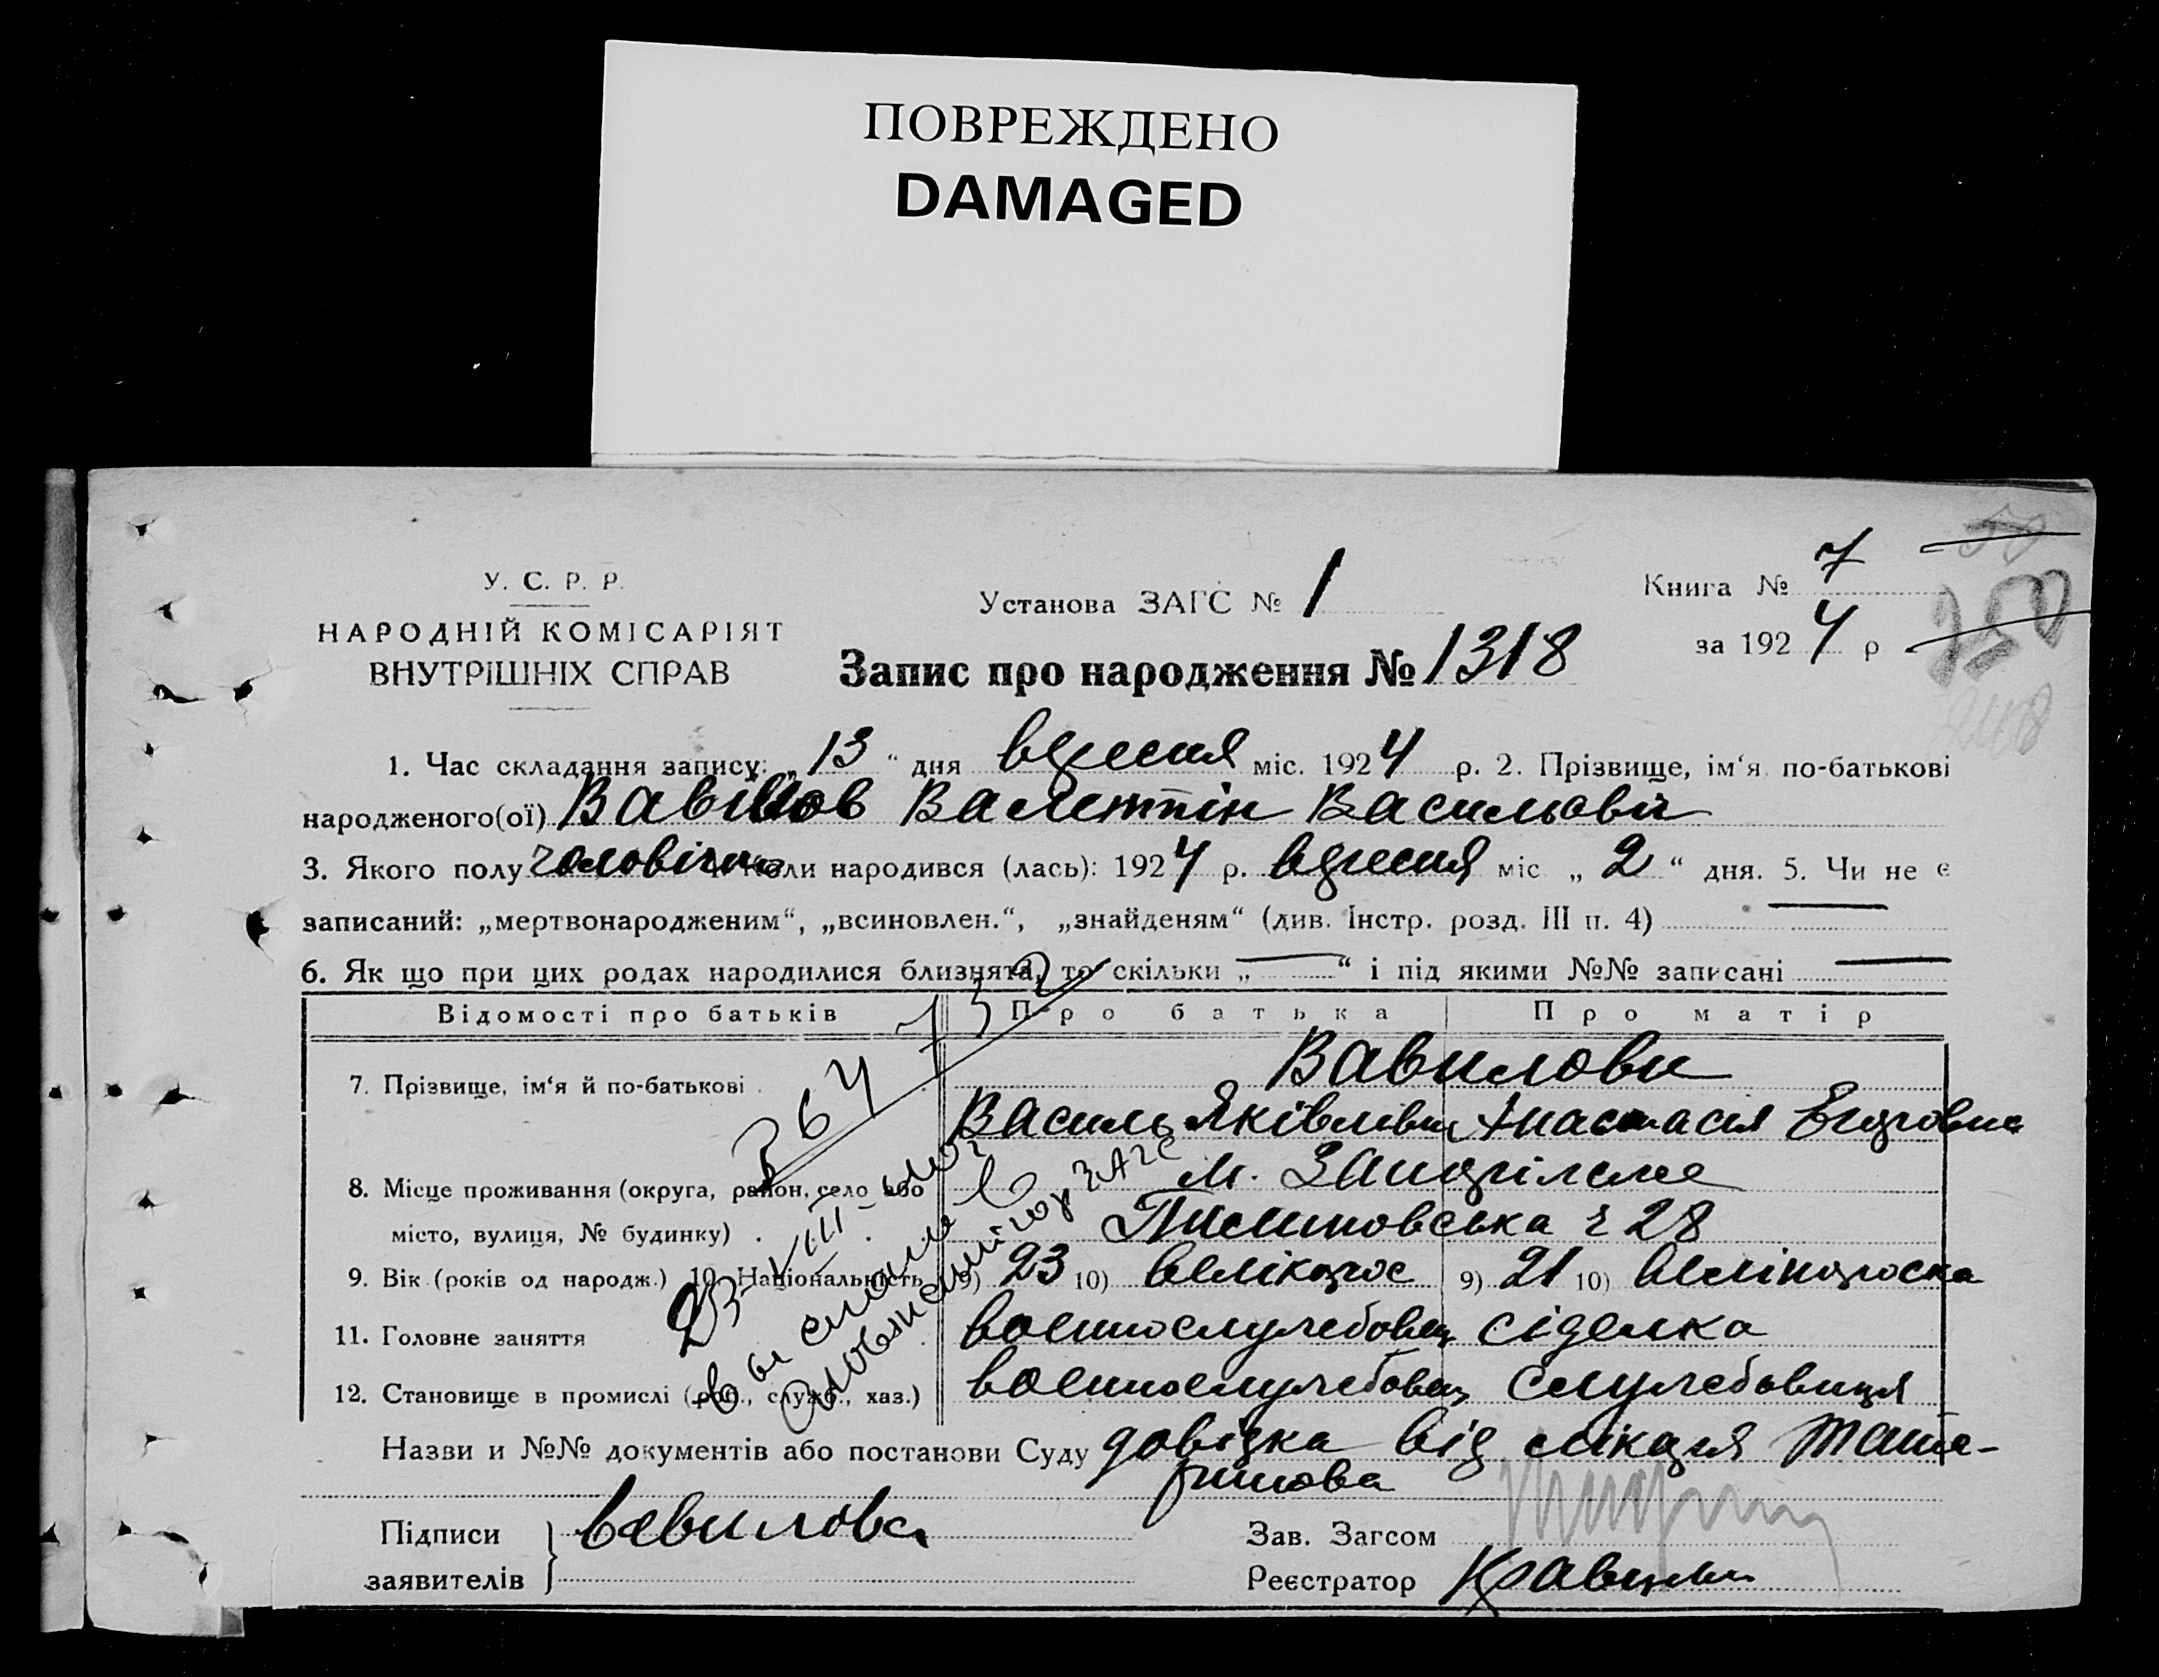 ПОВРЕЖДЕНО
DAMAGED
У. С. Р. Р.
НАРОДНІЙ КОМІСАРІЯТ
ВНУТРІШНІХ СПРАВ
Установа ЗАГС № 1
Книга № 7
за 1924 р
50
750
Запис про народження № 1318
1. Час складання запису: „13“ дня вересня міс. 1924 р. 2. Прізвище, ім‘я по-батькові
народженого(ої) Вавілов Валентін Васильовіч
3. Якого полу чоловічого Коли народився (лась): 1924 р. вересня міс „2“ дня. 5. Чи не є
записаний: „мертвонародженим“, „всиновлен.“, „знайденям“ (див. Інстр. розд. III п. 4) —
6. Як що при цих родах народилися близнята, то скільки „—“ і під якими №№ записані —
Відомості про батьків Про батька Про матір
7. Прізвище, ім‘я й по-батькові Вавилови
Василь Яківлівич Анастасія Егоровна
8. Місце проживання (округа, район, село або м. Запоріжжє
місто, вулиця, № будинку) ч 28
9. Вік (років од народж.) 10. Національність 9) 23 10) велікорос 9) 21 10) велікороска
11. Головне заняття военнослужбовец сіделка
12. Становище в промислі (роб., служб., хаз.) военнослужбовец служебовиця
Назви и №№ документів або постанови Суду довідка від лікаря
Підписи
заявителів
Вавилова
Зав. Загсом
Реєстратор
364732
23-VIII
ЗАГС